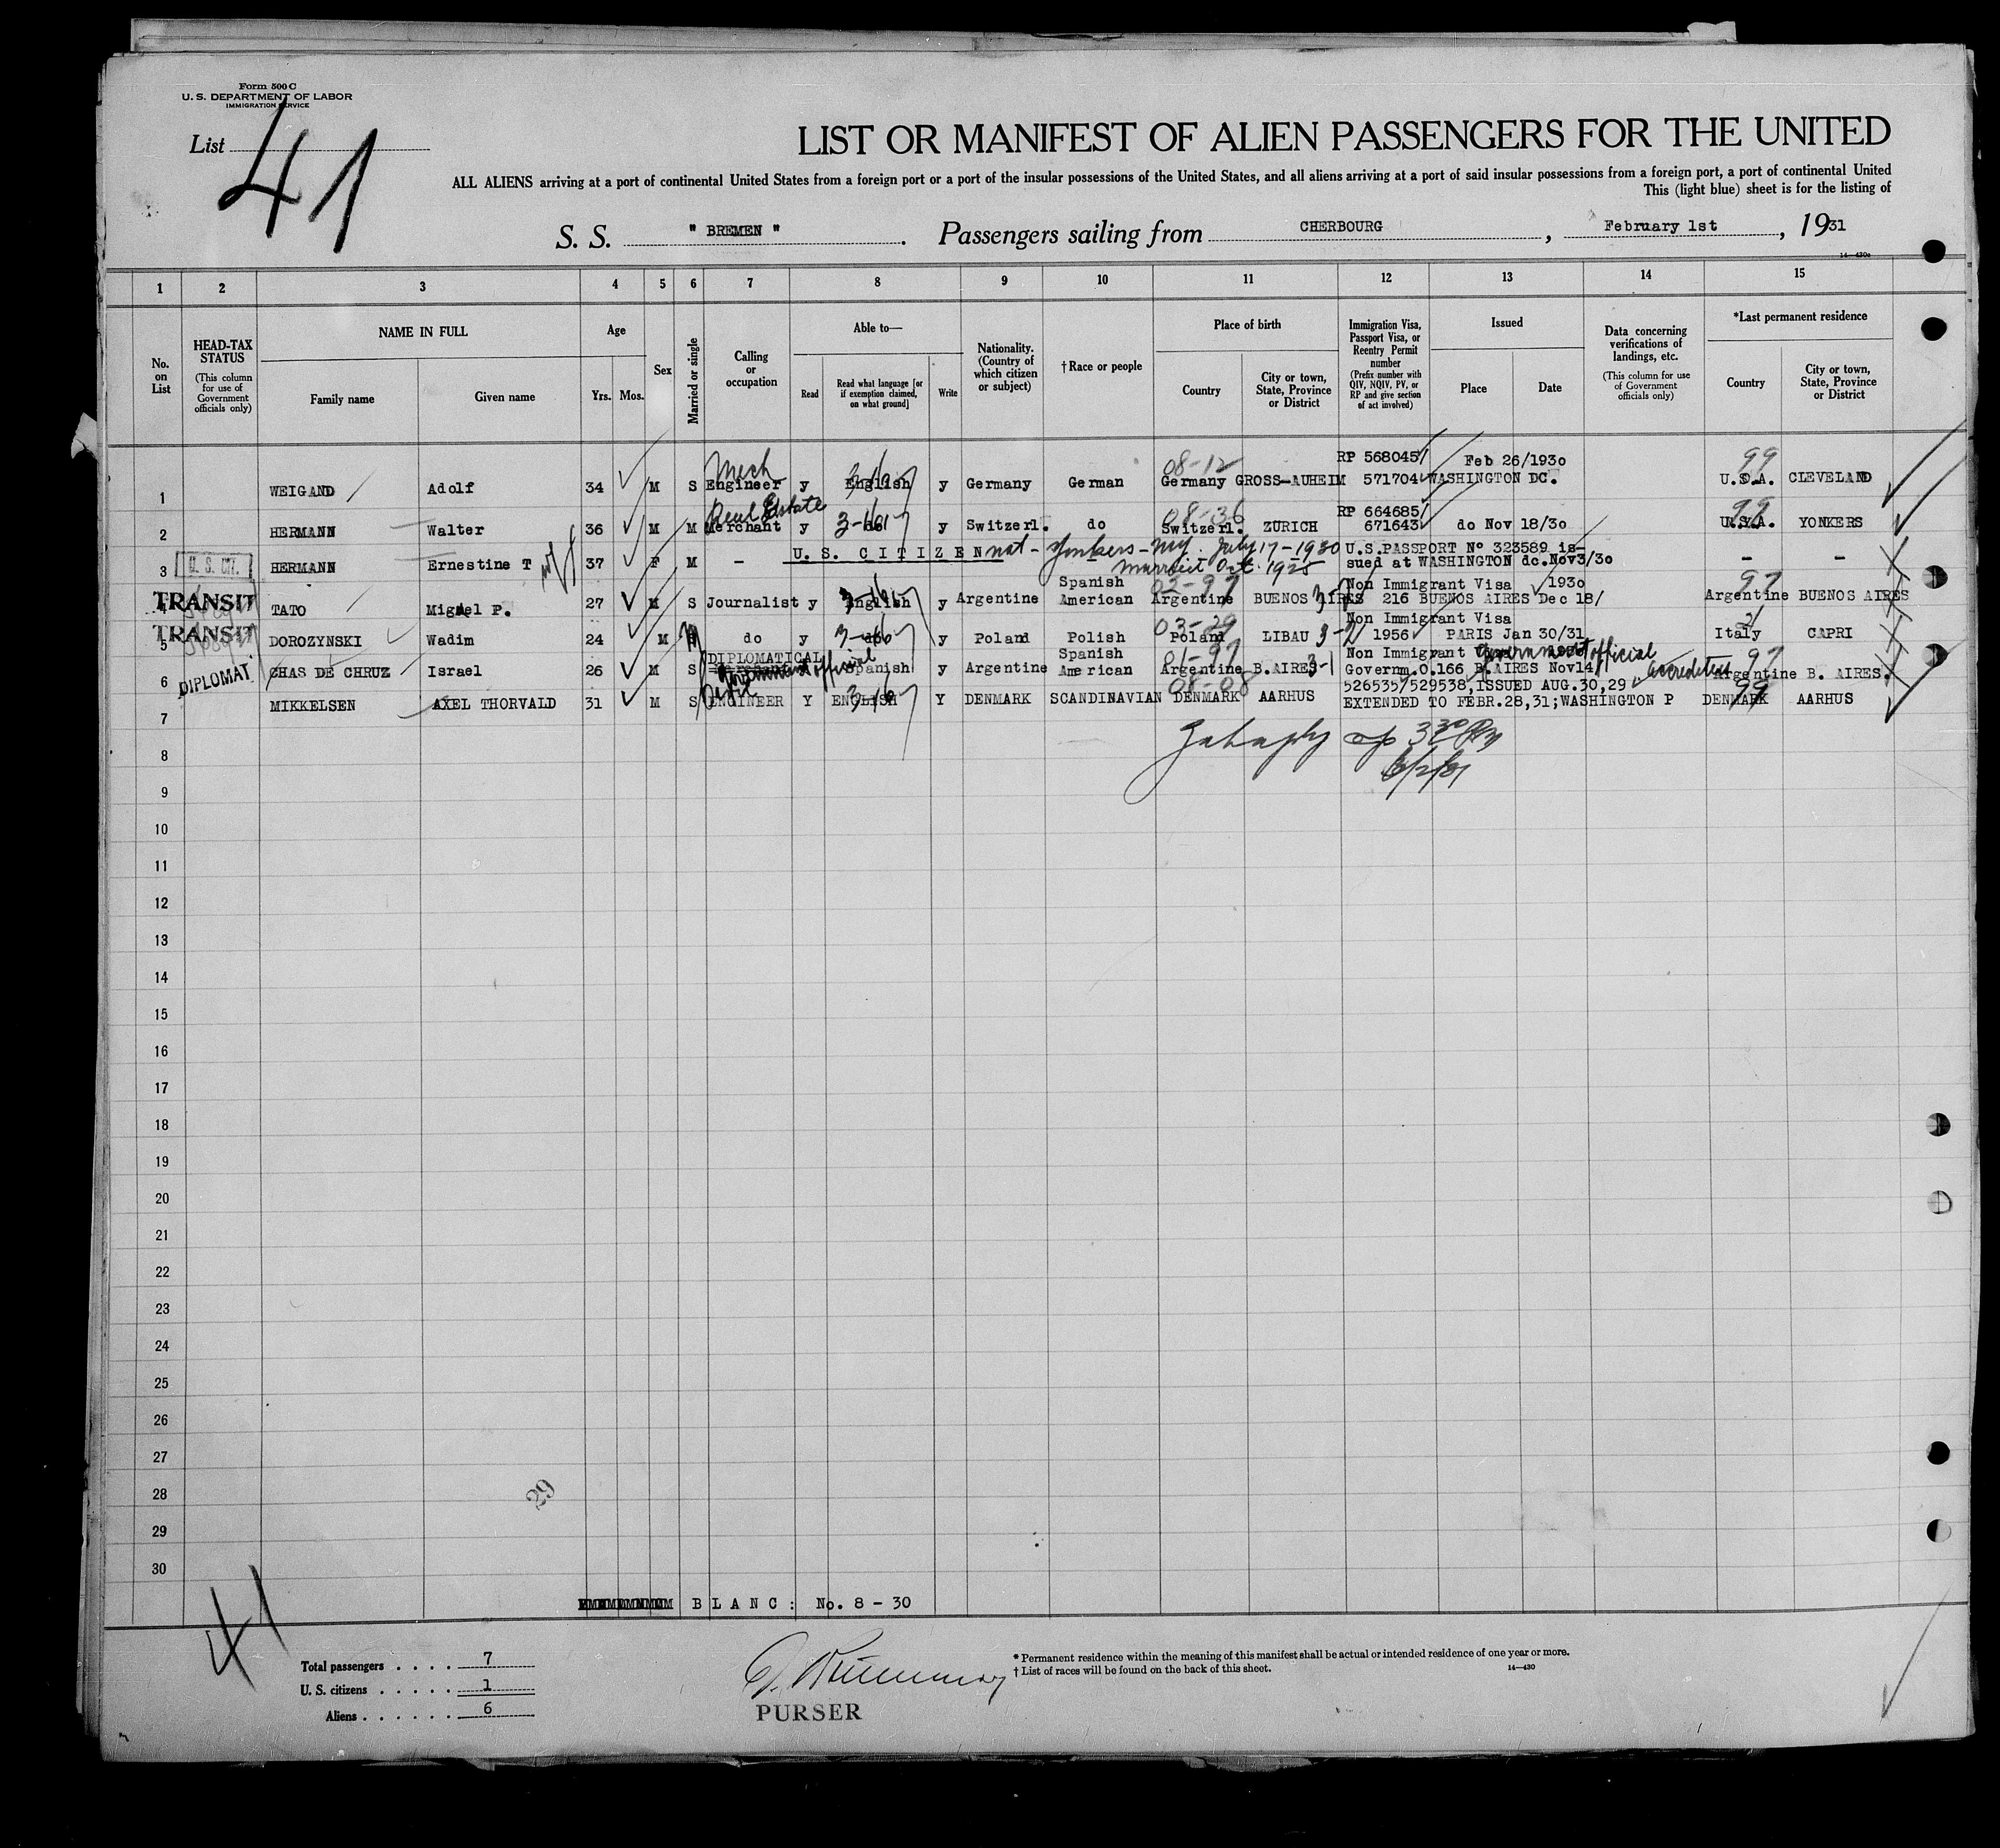 Form 500 C
U. S. DEPARTMENT OF LABOR
IMMIGRATION SERVICE
List 41
LIST OR MANIFEST OF ALIEN PASSENGERS FOR THE UNITED
ALL ALIENS arriving at a port of continental United States from a foreign port or a port of the insular possessions of the United States, and all aliens arriving at a port of said insular possessions from a foreign port, a port of continental United
This (light blue) sheet is for the listing of
S. S. " BREMEN " . Passengers sailing from CHERBOURG , February 1st , 1931
14—430c
1 2 3 4 5 6 7 8 9 10 11 12 13 14 15
No. on List
HEAD-TAX STATUS (This column for use of Government officials only)
NAME IN FULL Family name Given name
Age Yrs. Mos.
Sex
Married or single
Calling or occupation
Able to— Read Read what language [or if exemption claimed, on what ground] Write
Nationality. (Country of which citizen or subject)
† Race or people
Place of birth Country City or town, State, Province or District
Immigration Visa, Passport Visa, or Reentry Permit number (Prefix number with QIV, NQIV, PV, or RP and give section of act involved)
Issued Place Date
Data concerning verifications of landings, etc. (This column for use of Government officials only)
*Last permanent residence Country City or town, State, Province or District
Mech 08-12 RP 568045 Feb 26/1930 99
1 WEIGAND Adolf 34 M S Engineer y English y Germany German Germany GROSS-AUHEIM 571704 WASHINGTON DC. U.S.A. CLEVELAND
Real Estate 08-36 RP 664685/ 99
2 HERMANN Walter 36 M M Merchant y do y Switzerl. do Switzerl. ZURICH 671643 do Nov 18/30 U.S.A. YONKERS
U. S. CIT. U. S. CITIZEN nat - Yonkers - NY. July 17-1930 U.S.PASSPORT Nº 323589 is-
3 HERMANN Ernestine T 37 F M - married Oct. 1925 sued at WASHINGTON dc.Nov3/30 - -
Spanish 02-97 Non Immigrant Visa 1930 97
TRANSIT 4 TATO Miguel P. 27 M S Journalist y English y Argentine American Argentine BUENOS AIRES 3-2 216 BUENOS AIRES Dec 18/ Argentine BUENOS AIRES
03-29 Non Immigrant Visa 21
TRANSIT 5 DOROZYNSKI Wadim 24 M do y do y Poland Polish Poland LIBAU 3-2 1956 PARIS Jan 30/31 Italy CAPRI
DIPLOMATICAL Spanish 01-97 Non Immigrant Government official 97
DIPLOMAT 6 CHAS DE CHRUZ Israel 26 M S Government official Spanish y Argentine American Argentine B.AIRES 3-1 Governm.O.166 B.AIRES Nov14/ accredited Argentine B. AIRES.
08-08 526535/529538,ISSUED AUG.30,29 99
7 MIKKELSEN AXEL THORVALD 31 M S ENGINEER Y ENGLISH Y DENMARK SCANDINAVIAN DENMARK AARHUS EXTENDED TO FEBR.28,31;WASHINGTON P DENMARK AARHUS
8
9
10
11
12
13
14
15
16
17
18
19
20
21
22
23
24
25
26
27
28
29
29
30
BLANC: No. 8 - 30
41
Total passengers . . . . 7
U. S. citizens . . . . . 1
Aliens . . . . . . 6
PURSER
* Permanent residence within the meaning of this manifest shall be actual or intended residence of one year or more.
† List of races will be found on the back of this sheet. 14—430